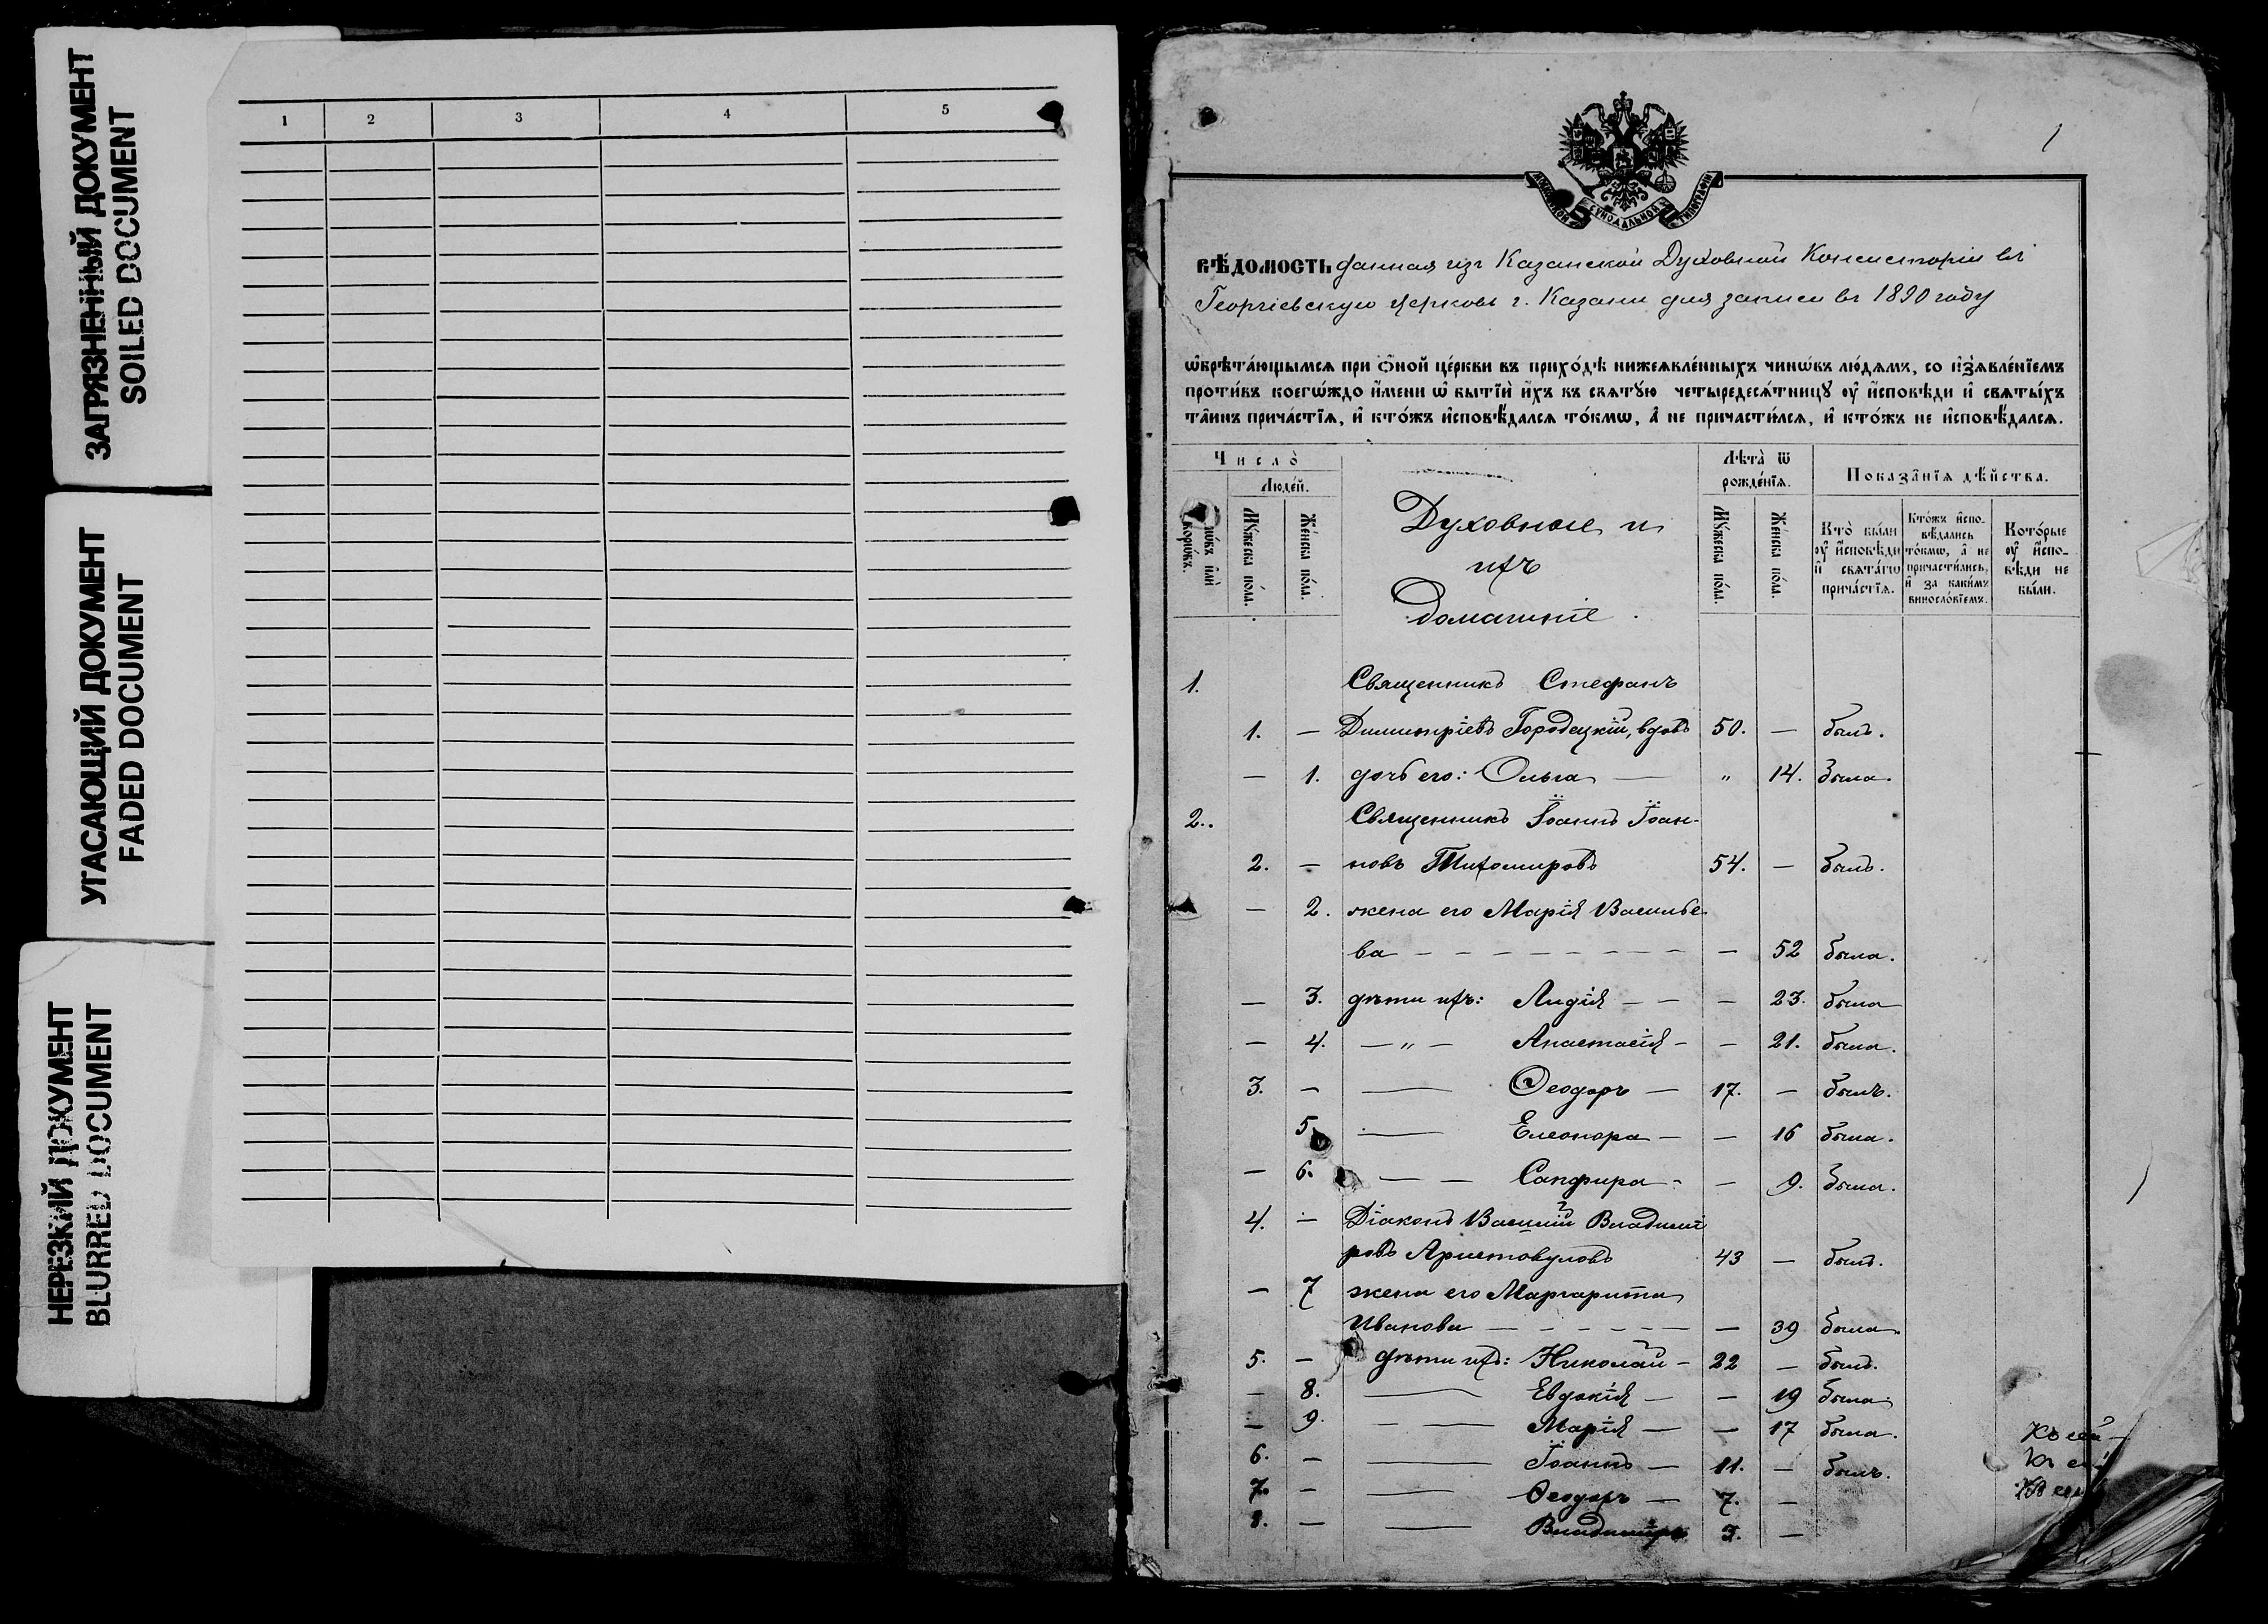 ЗАГРЯЗНЕННЫЙ ДОКУМЕНТ
SOILED DOCUMENT
УГАСАЮЩИЙ ДОКУМЕНТ
FADED DOCUMENT
НЕРЕЗКИЙ ДОКУМЕНТ
BLURRED DOCUMENT
1 2 3 4 5
1
МОСКОВСКОЙ СѴНОДАЛЬНОЙ ТИПОГРАФІИ
ВѢ́ДОМОСТЬ данная изъ Казанской Духовной Консисторіи въ
Георгіевскую церковь г. Казани для записи въ 1890 году
ѡ҆брѣта́ющымсѧ при ѻ҆́ной це́ркви въ прихо́дѣ нижеѧвле́нныхъ чинѡ́въ лю́дѧмъ, со и҆з̾ѧвле́нїемъ
проти́въ коегѡ́ждо и҆́мени ѡ҆ бытїѝ и҆́хъ въ свѧтꙋ́ю четыредесѧ́тницꙋ ᲂу҆ и҆́сповѣди и҆ свѧты́хъ
та̑инъ прича́стїѧ, и҆ кто́жъ и҆сповѣ́далсѧ то́кмѡ, а҆ не причасти́лсѧ, и҆ кто́жъ не и҆сповѣ́далсѧ.
Число̀
Люде́й.
Дворѡ́въ.
Мꙋ́жеска по́ла.
Же́нска по́ла.
Духовные и
ихъ
домашніе.
Лѣ́та ѿ
рожде́нїѧ.
Мꙋ́жеска по́ла.
Же́нска по́ла.
Показа̑нїѧ дѣ́йства.
Кто̀ бы́ли
ᲂу҆ и҆́сповѣди
и҆ свѧта́гѡ
прича́стїѧ.
Кто́жъ и҆спо-
вѣ́дались
то́кмѡ, а҆ не
причасти́лись,
и҆ за каки́мъ
винослові́емъ.
Кото́рые
ᲂу҆ и҆́спо-
вѣди не
бы́ли.
1. Священникъ Стефанъ
1. — Димитріевъ Городецкій, вдовъ 50. — былъ.
— 1. дочь его: Ольга — „ 14. была.
2. Священникъ Іоаннъ Іоан-
2. — новъ Тихомировъ 54. — былъ.
— 2. жена его Марія Василье-
ва — — — — — — — 52 была.
— 3. дѣти ихъ: Лидія — — — 23. была
— 4. — „ — Анастасія — — 21. была.
3. — — Ѳеодоръ — 17. — былъ.
5. — Елеонора — — 16 была.
— 6. — — Сапфира — — 9. была.
4. — Діаконъ Василій Владимі
ровъ Аристовуловъ 43 — былъ.
— 7 жена его Маргарита
Иванова — — — — — — 39 была.
5. — дѣти ихъ: Николай — 22 — былъ.
— 8. — Евдокія — — 19 была
— 9. — Марія — — 17 была.
6. — — Іоаннъ — 11. — былъ.
7. — — Ѳеодоръ — 7. —
8. — — Владиміръ 3. —